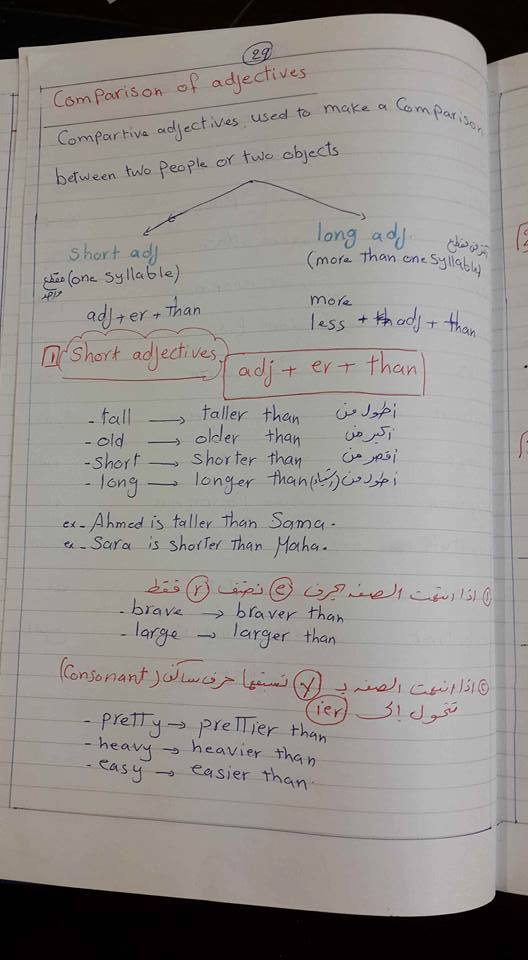 29
Comparison of adjectives
Compartive adjectives used to make a Comparison
between two people or two objects
short adj
long adj
(one syllable) مقطع واحد
(more than one syllable) أكثر من مقطع
adj + er + than
more
less + adj + than
1 Short adjectives
adj + er + than
- tall → taller than أطول من
- old → older than أكبر من
- short → shorter than أقصر من
- long → longer than (أشياء) أطول من
ex - Ahmed is taller than Sama.
ex - Sara is shorter than Maha.
① اذا انتهت الصفه بحرف e نضيف r فقط
- brave → braver than
- large → larger than
② اذا انتهت الصفه بـ y تسبقها حرف ساكن (Consonant)
تتحول إلى ier
- pretty → prettier than
- heavy → heavier than
- easy → easier than.